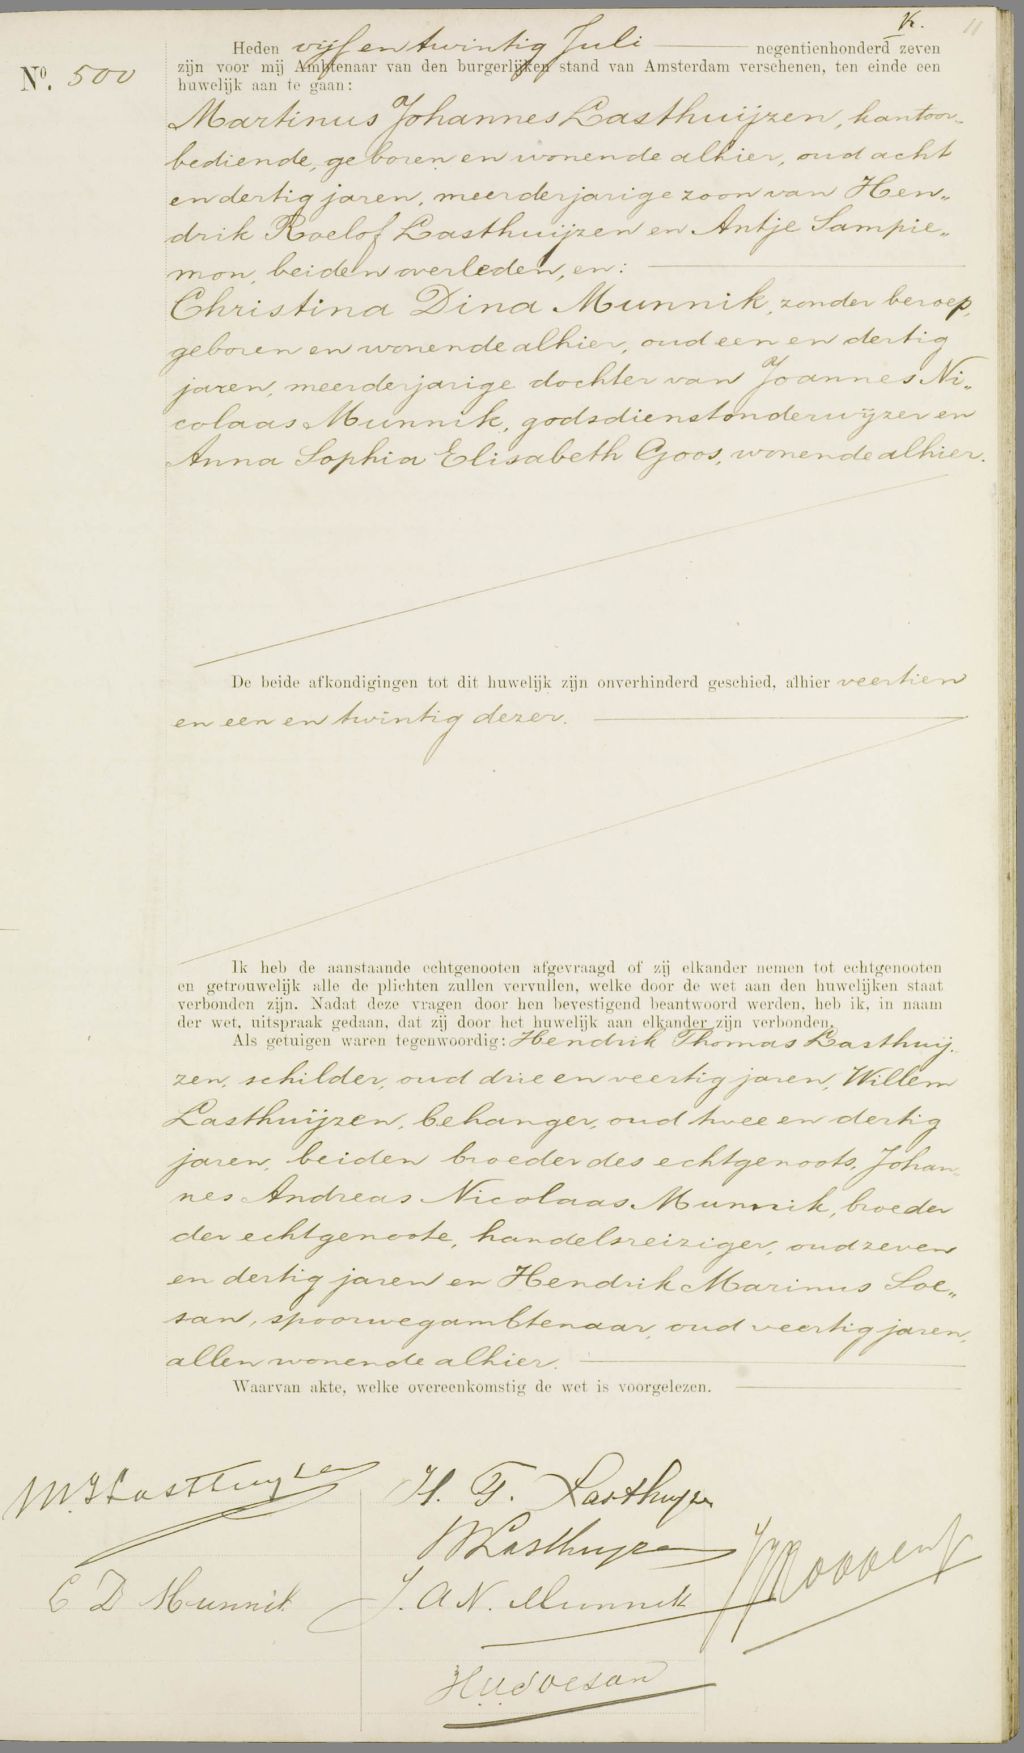 K. 11
Nº. 500
Heden vijf en twintig Juli negentienhonderd zeven
zijn voor mij Ambtenaar van den burgerlijken stand van Amsterdam verschenen, ten einde een
huwelijk aan te gaan:
Martinus Johannes Lasthuijzen, kantoor-
bediende, geboren en wonende alhier, oud acht
en dertig jaren, meerderjarige zoon van Hen„
drik Roelof Lasthuijzen en Antje Sampie„
mon, beiden overleden, en:
Christina Dina Munnik, zonder beroep,
geboren en wonende alhier, oud een en dertig
jaren, meerderjarige dochter van Joannes Ni„
colaas Munnik, godsdienstonderwijzer en
Anna Sophia Elisabeth Goos, wonende alhier.
De beide afkondigingen tot dit huwelijk zijn onverhinderd geschied, alhier veertien
en een en twintig dezer.
Ik heb de aanstaande echtgenooten afgevraagd of zij elkander nemen tot echtgenooten
en getrouwelijk alle de plichten zullen vervullen, welke door de wet aan den huwelijken staat
verbonden zijn. Nadat deze vragen door hen bevestigend beantwoord werden, heb ik, in naam
der wet, uitspraak gedaan, dat zij door het huwelijk aan elkander zijn verbonden.
Als getuigen waren tegenwoordig: Hendrik Thomas Lasthuij-
zen, schilder, oud drie en veertig jaren, Willem
Lasthuijzen, behanger, oud twee en dertig
jaren, beiden broeder des echtgenoots, Johan
nes Andreas Nicolaas Munnik, broeder
der echtgenoote, handelsreiziger, oud zeven
en dertig jaren en Hendrik Marinus Soe„
san, spoorwegambtenaar, oud veertig jaren,
allen wonende alhier.
Waarvan akte, welke overeenkomstig de wet is voorgelezen.
M J Lasthuyzen H. T. Lasthuyzen
W Lasthuyzen
C D Munnik J. A N. Munnik
H M Soesan